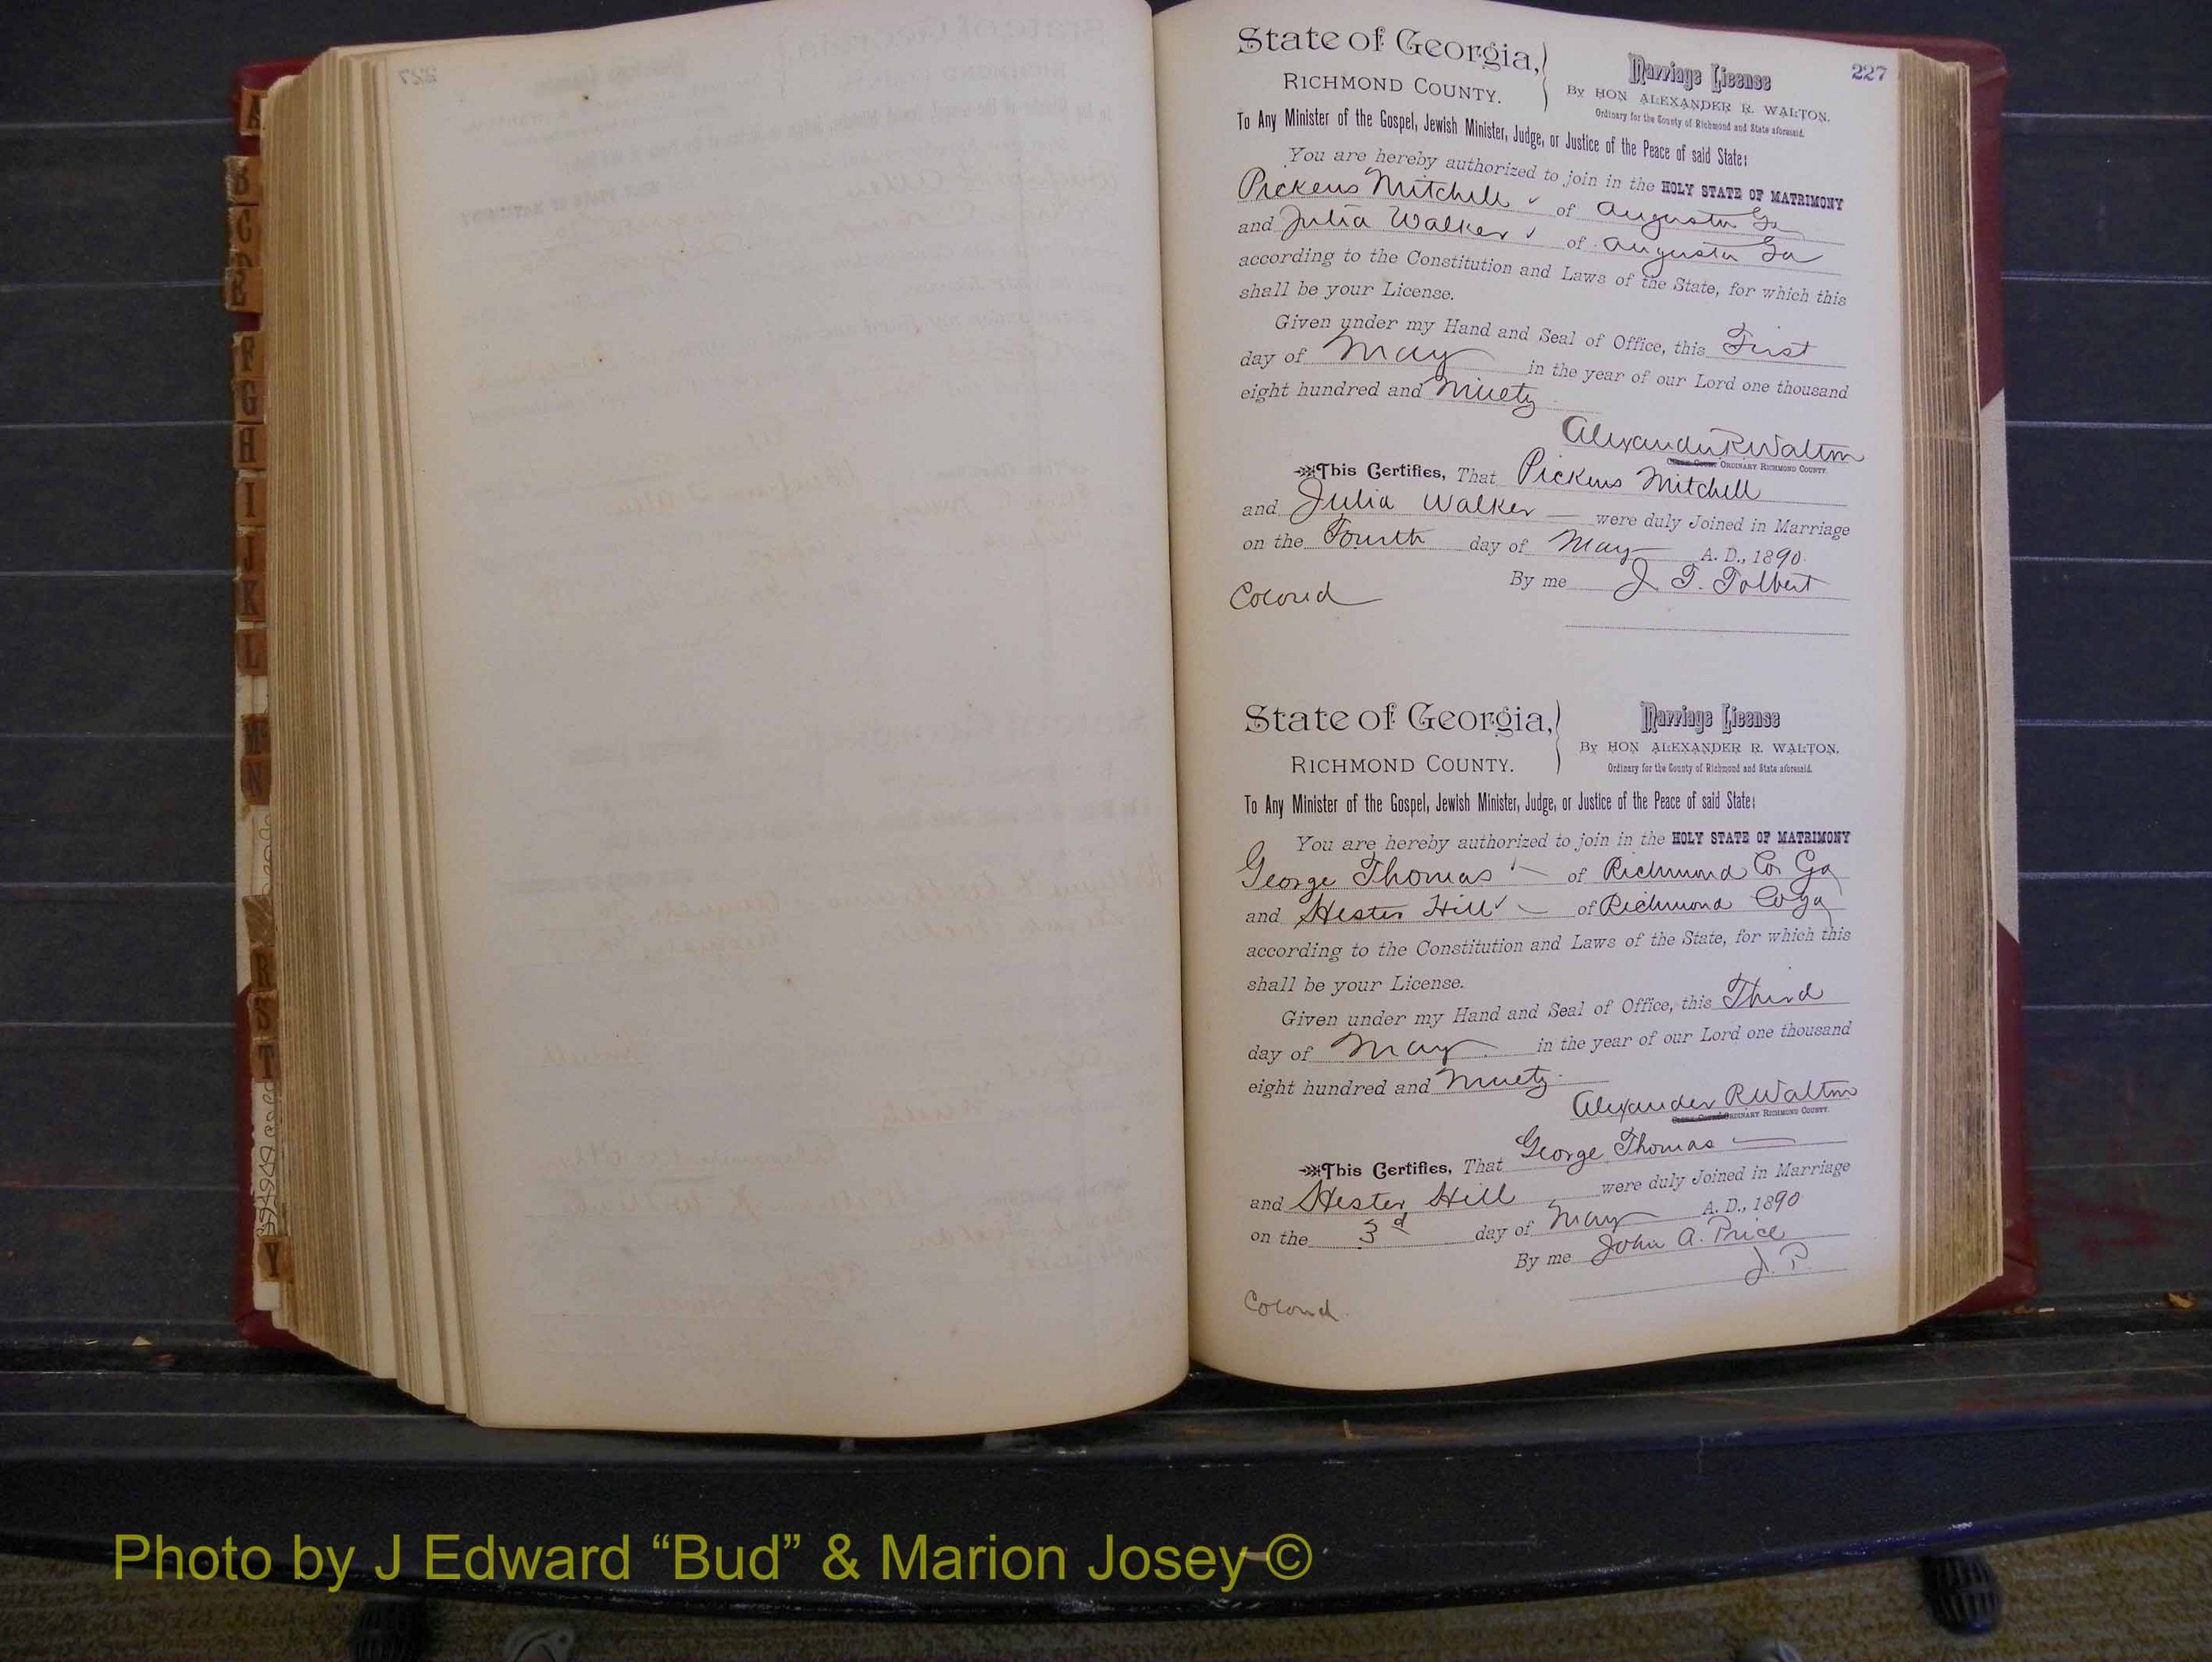 227
State of Georgia,
RICHMOND COUNTY.
Marriage License
By HON ALEXANDER R. WALTON.
Ordinary for the County of Richmond and State aforesaid.
To Any Minister of the Gospel, Jewish Minister, Judge, or Justice of the Peace of said State:
You are hereby authorized to join in the HOLY STATE OF MATRIMONY
Pickens Mitchell of Augusta Ga
and Julia Walker of Augusta Ga
according to the Constitution and Laws of the State, for which this
shall be your License.
Given under my Hand and Seal of Office, this First
day of May in the year of our Lord one thousand
eight hundred and Ninety
Alexander R Walton
ORDINARY RICHMOND COUNTY.
This Certifies, That Pickens Mitchell
and Julia Walker were duly Joined in Marriage
on the Fourth day of May A. D., 1890.
By me J. T. Tolbert
Colored
State of Georgia,
RICHMOND COUNTY.
Marriage License
By HON ALEXANDER R. WALTON.
Ordinary for the County of Richmond and State aforesaid.
To Any Minister of the Gospel, Jewish Minister, Judge, or Justice of the Peace of said State:
You are hereby authorized to join in the HOLY STATE OF MATRIMONY
George Thomas of Richmond Co Ga
and Hester Hill of Richmond Co Ga
according to the Constitution and Laws of the State, for which this
shall be your License.
Given under my Hand and Seal of Office, this Third
day of May in the year of our Lord one thousand
eight hundred and Ninety
Alexander R Walton
ORDINARY RICHMOND COUNTY.
This Certifies, That George Thomas
and Hester Hill were duly Joined in Marriage
on the 3d day of May A. D., 1890
By me John A. Price
J. P.
Colored.
A
B
C
D
E
F
G
H
I
J
K
L
M
N
R
S
T
Y
Photo by J Edward “Bud” & Marion Josey ©